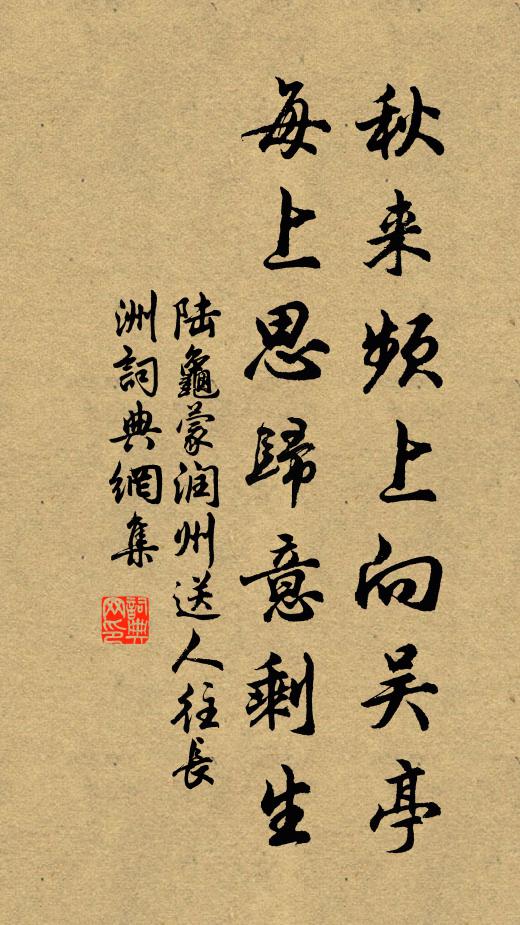 秋来频上向吴亭
每上思歸意剩生
陆龜蒙润州送人往長
洲詞典網集
詞典
网印